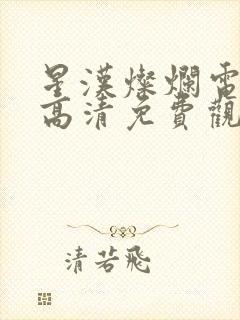 星漢燦爛電
高清免費觀
清若飛